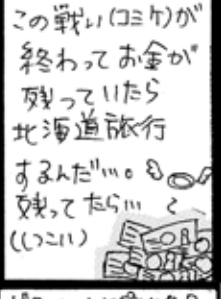 この戦い(コミケ)が
終わってお金が
残っていたら
北海道旅行
するんだ…。
残ってたら…
(しつこい)